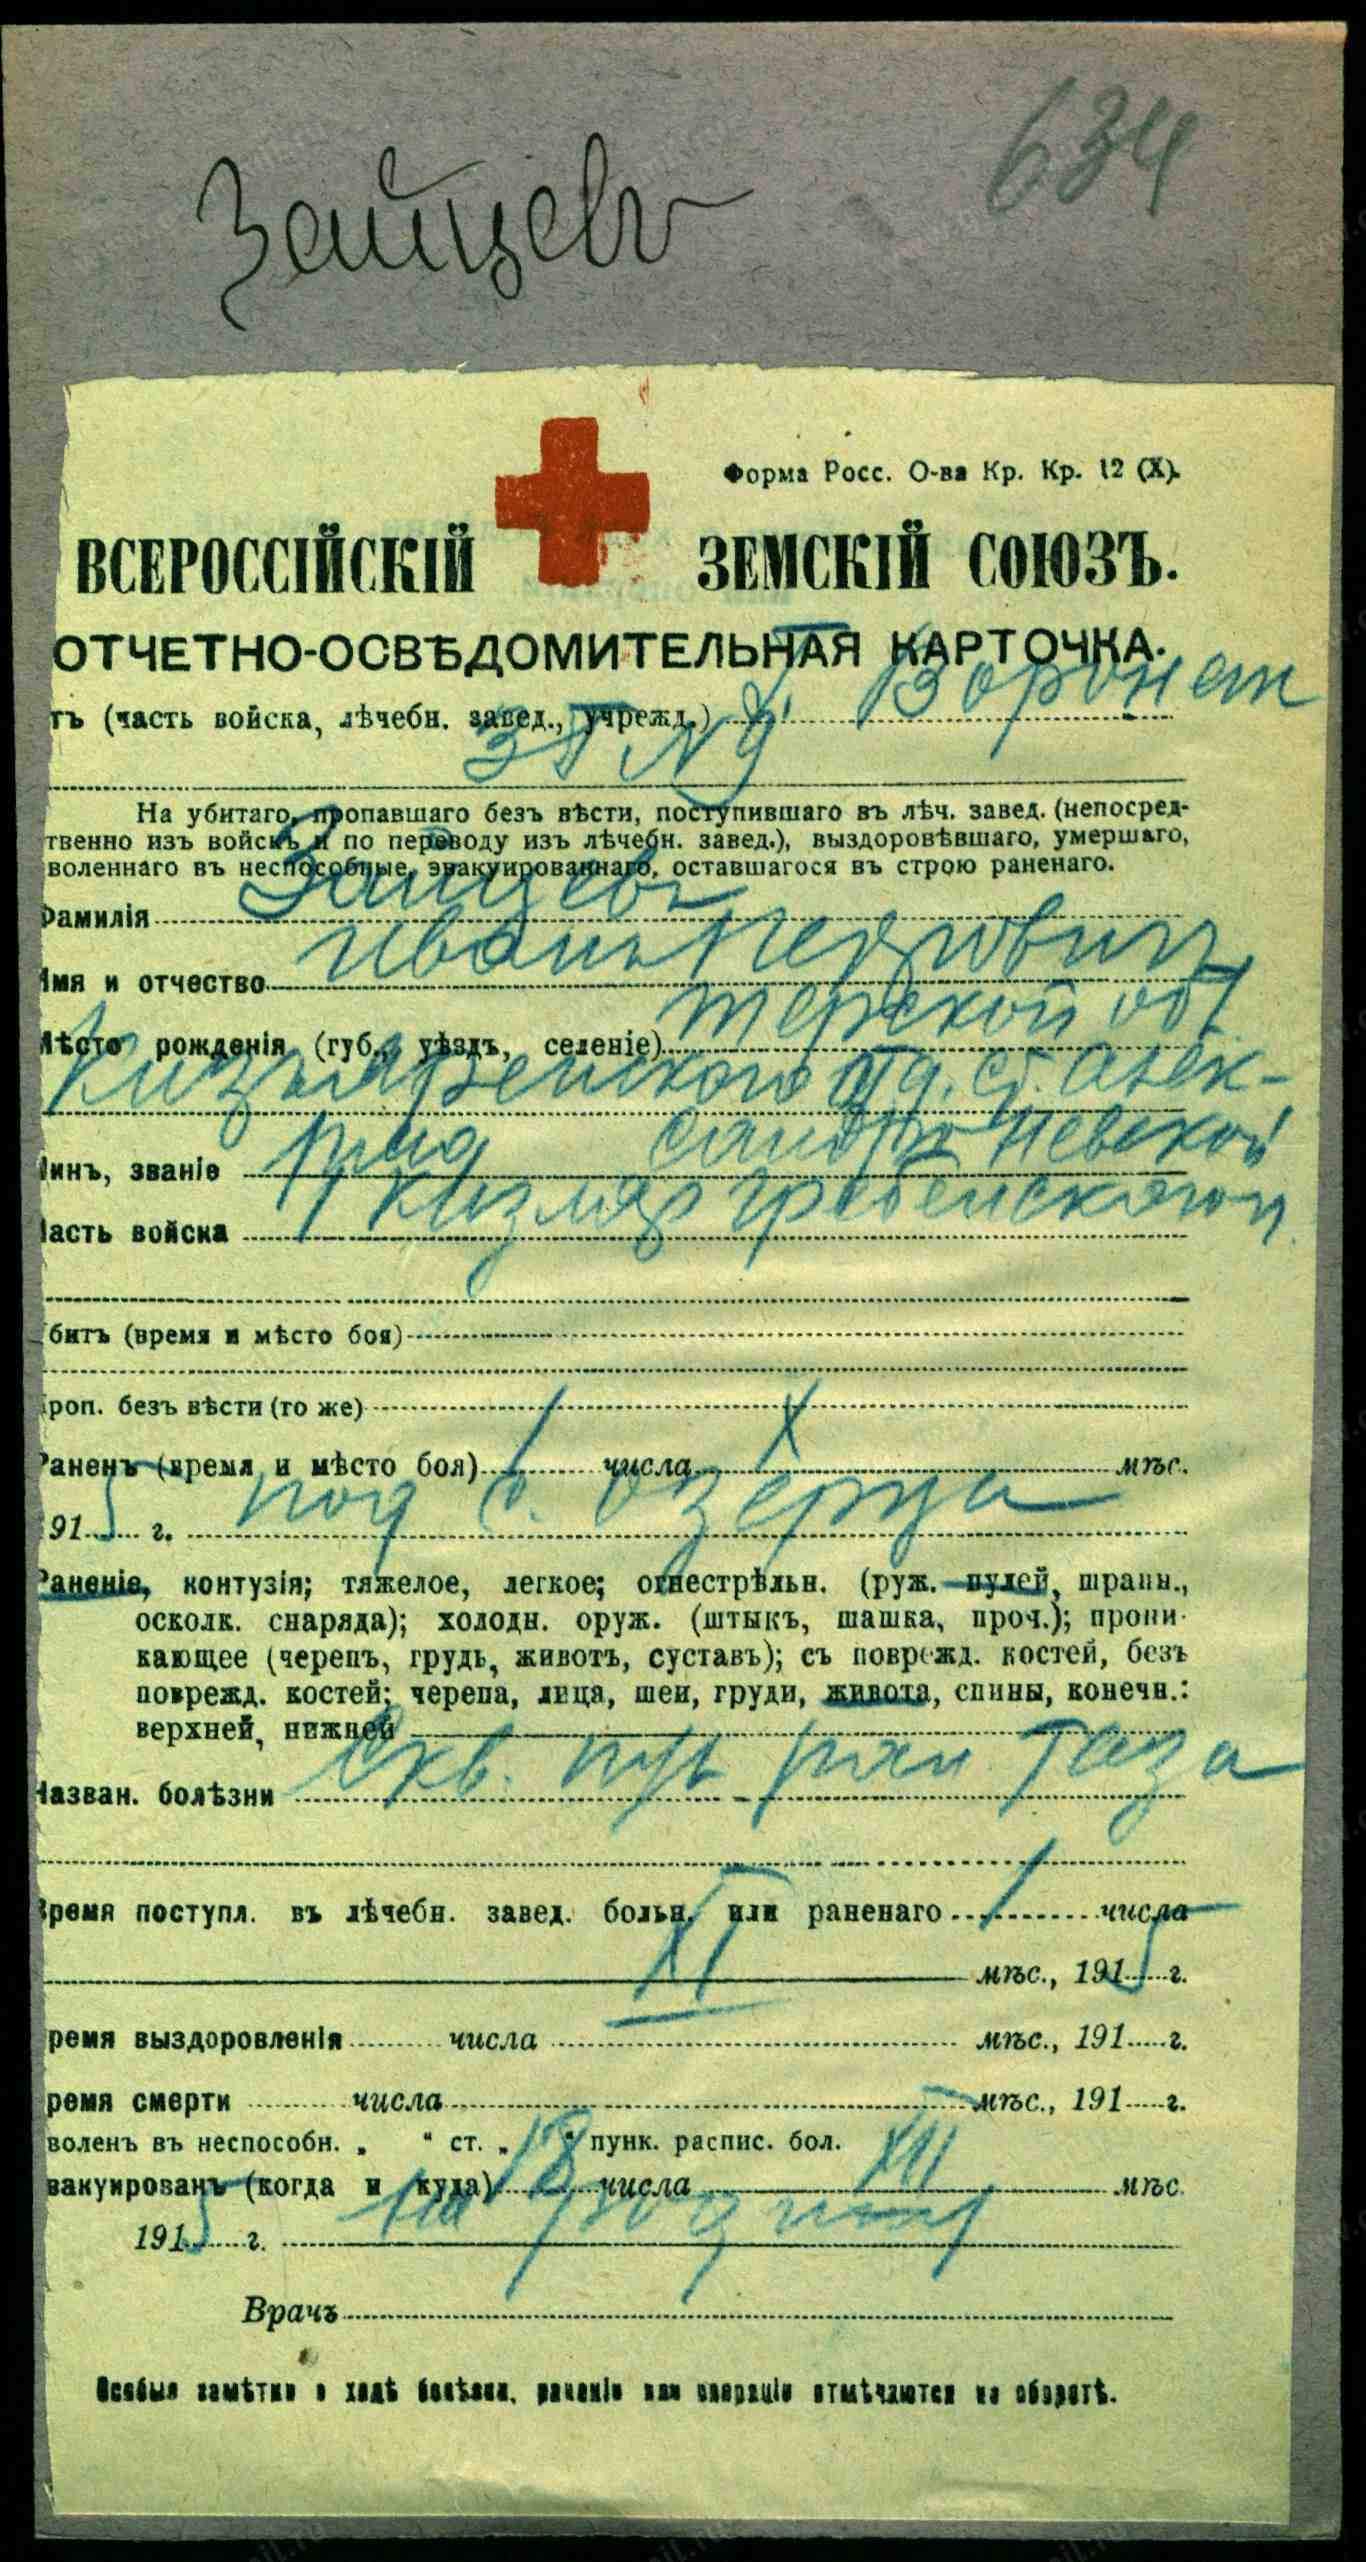 634
Зайцевъ
Форма Росс. О-ва Кр. Кр. 12 (X).
ВСЕРОССІЙСКІЙ ЗЕМСКІЙ СОЮЗЪ.
ОТЧЕТНО-ОСВѢДОМИТЕЛЬНАЯ КАРТОЧКА.
тъ (часть войска, лѣчебн. завед., учрежд.) Воронеж
№ 9
На убитаго, пропавшаго безъ вѣсти, поступившаго въ лѣч. завед. (непосред-
твенно изъ войскъ и по переводу изъ лѣчебн. завед.), выздоровѣвшаго, умершаго,
воленнаго въ неспособные, эвакуированнаго, оставшагося въ строю раненаго.
Фамилія Зайцевъ
Имя и отчество Иванъ Петрович
Мѣсто рожденія (губ., уѣздъ, селеніе) Терской об
Кизляр отд. ст. Алек-
сандро Невской
Чинъ, званіе ряд
Часть войска 1 Кизляр Гребенского п
Убитъ (время и мѣсто боя)
Проп. безъ вѣсти (то же)
Раненъ (время и мѣсто боя) 1 числа X мѣс.
1915 г. под с. Озерца
Раненіе, контузія; тяжелое, легкое; огнестрѣльн. (руж. пулей, шрапн.,
осколк. снаряда); холодн. оруж. (штыкъ, шашка, проч.); прони-
кающее (черепъ, грудь, животъ, суставъ); съ поврежд. костей, безъ
поврежд. костей; черепа, лица, шеи, груди, живота, спины, конечн.:
верхней, нижней
Назван. болѣзни Скв. пул ран. таза
Время поступл. въ лѣчебн. завед. больн. или раненаго 1 числа
XI мѣс., 1915 г.
ремя выздоровленія числа мѣс., 191 г.
ремя смерти числа мѣс., 191 г.
воленъ въ неспособн. „ “ ст. „ “ пунк. распис. бол.
вакуированъ (когда и куда) 18 числа XII мѣс.
1915 г. на родину
Врачъ
Особыя замѣтки о ходѣ болѣзни, раненіи или операціи отмѣчаются на оборотѣ.